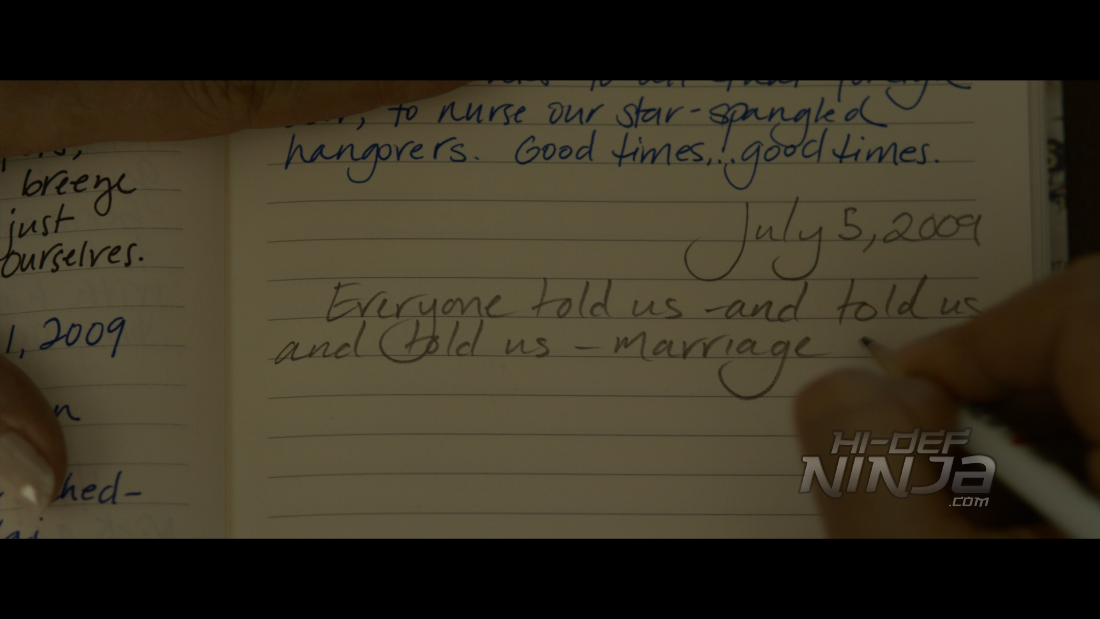 breeze
just
ourselves.
1, 2009
to nurse our star-spangled
hangovers. Good times...good times.
July 5, 2009
Everyone told us - and told us
and told us - marriage
HI-DEF
NINJA
.COM